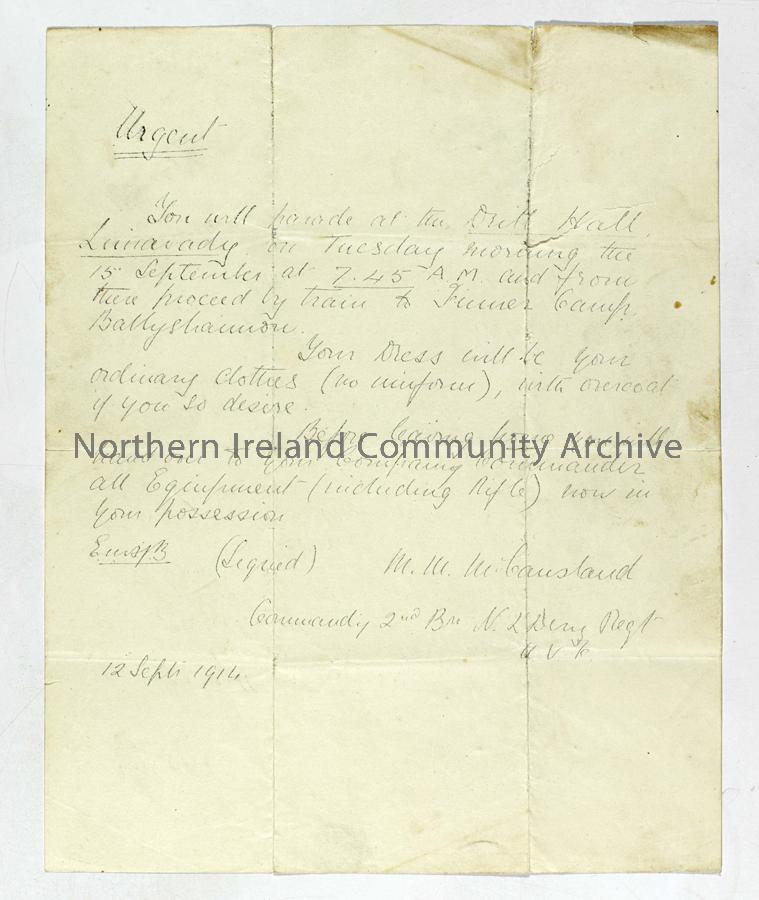 Urgent
You will parade at the Drill Hall,
Limavady, on Tuesday morning the
15 September at 7.45 A.M. and from
there proceed by train to Finner Camp,
Ballyshannon.
Your Dress will be your
ordinary clothes (no uniform), with overcoat
if you so desire.
Before leaving home you will
Northern Ireland Community Archive
to your Company Commander
all Equipment (including Rifle) now in
your possession
(Signed) M. M. McCausland
Commandg 2nd Bn N. L Derry Regt
U V F
12 Sept 1914.